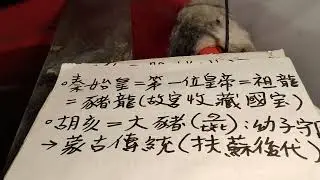 。秦始皇=第一位皇帝=祖龍
=豬龍(故宮收藏國宝)
。胡亥=大豬(彘):幼子守
→蒙古傳統(扶蘇後代)